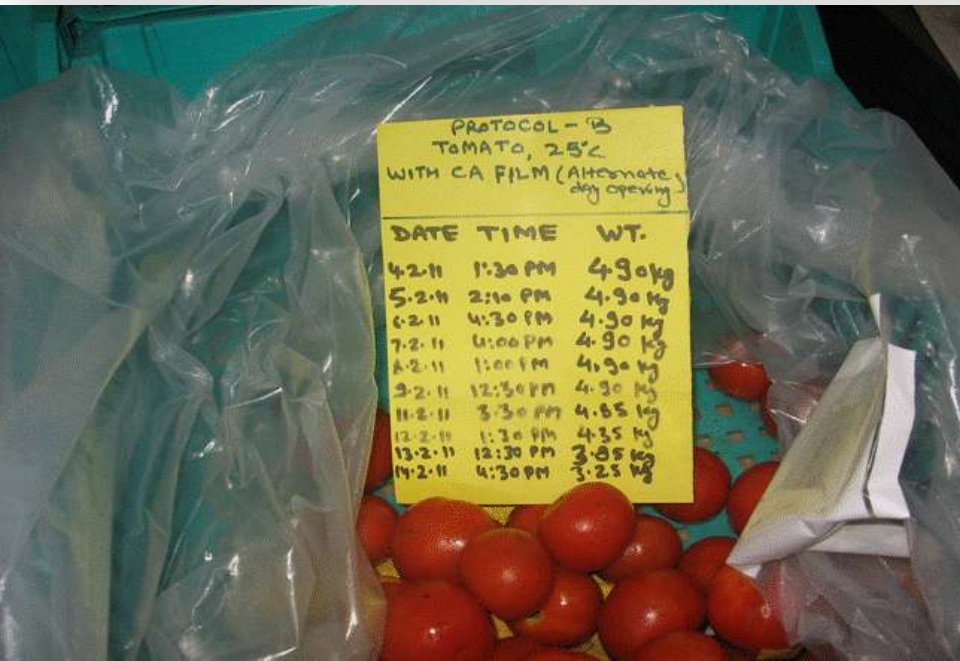 PROTOCOL - B
TOMATO, 25°C
WITH CA FILM (Alternate
day opening)
DATE TIME WT.
4.2.11 1:30 PM 4.90 kg
5.2.11 2:10 PM 4.90 kg
6.2.11 4:30 PM 4.90 kg
7.2.11 4:00 PM 4.90 kg
8.2.11 1:00 PM 4.90 kg
9.2.11 12:30 PM 4.90 kg
11.2.11 3:30 PM 4.85 kg
12.2.11 1:30 PM 4.35 kg
13.2.11 12:30 PM 3.85 kg
14.2.11 4:30 PM 3.25 kg